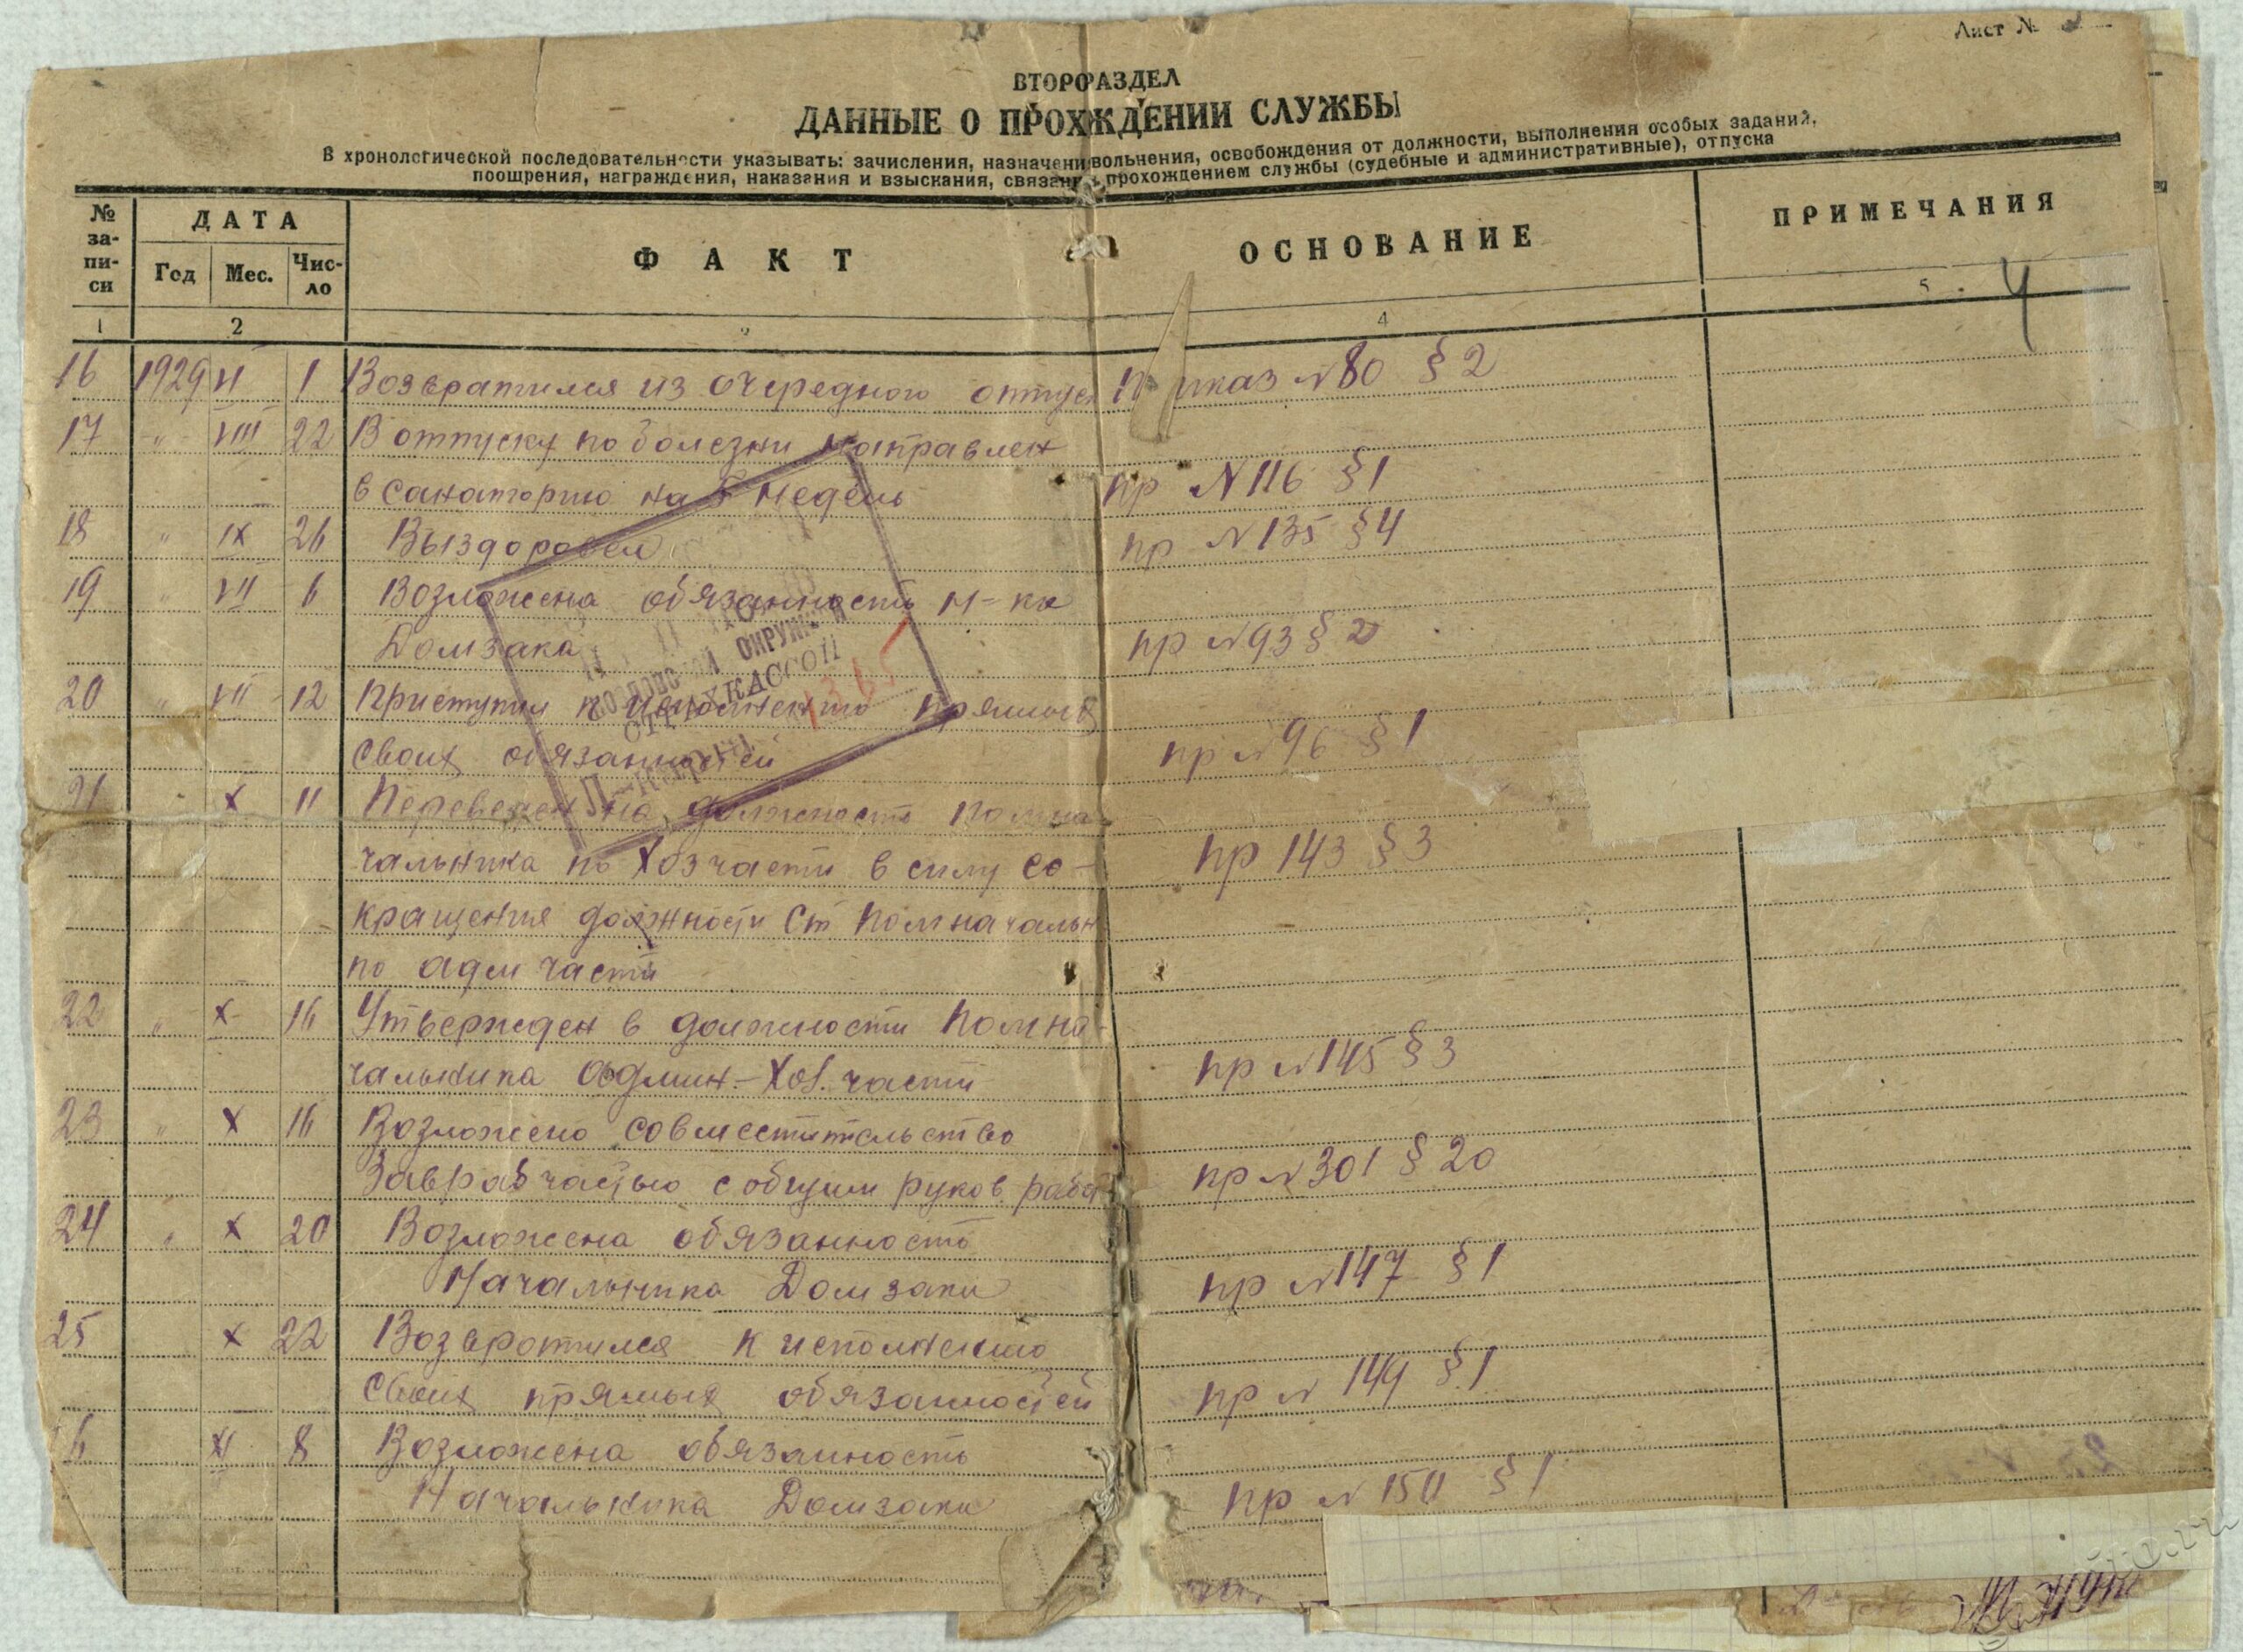 Лист №
ВТОРО РАЗДЕЛ
ДАННЫЕ О ПРОХЖДЕНИИ СЛУЖБЫ
В хронологической последовательности указывать: зачисления, назначени вольнения, освобождения от должности, выполнения особых заданий,
поощрения, награждения, наказания и взыскания, связан прохождением службы (судебные и административные), отпуска
№ за-пи-си ДАТА Год Мес. Чис-ло ФАКТ ОСНОВАНИЕ ПРИМЕЧАНИЯ
1 2 4 5 4
16 1929 VI 1 Возвратился из очередного отпуск Приказ N 80 § 2
17 " VIII 22 В отпуску по болезни направлен
в санаторию на 5 недель пр N 116 § 1
18 " IX 26 Выздоровел пр N 135 § 4
19 " VII 6 Возложена обязанность н-ка
Домзака пр N 93 § 2
20 " VII 12 Приступил к исполнению прямых
своих обязанностей пр N 96 § 1
21 X 11 Переведен на должность помна-
чальника по Хозчасти в силу со- пр 143 § 3
кращения должности Ст помначальн
по адм части
22 " X 16 Утвержден в должности Помна-
чальника админ.-Хоз. части пр N 145 § 3
23 " X 16 Возложено совместительство
частью с общим руков. работ пр N 301 § 20
24 " X 20 Возложена обязанность
Начальника Домзака пр N 147 § 1
25 X 22 Возвротился к исполнению
своих прямых обязанностей пр N 149 § 1
6 XI 8 Возложена обязанность
Начальника Домзака пр N 150 § 1
ОКРУЖН
СТРАХКАССОЙ